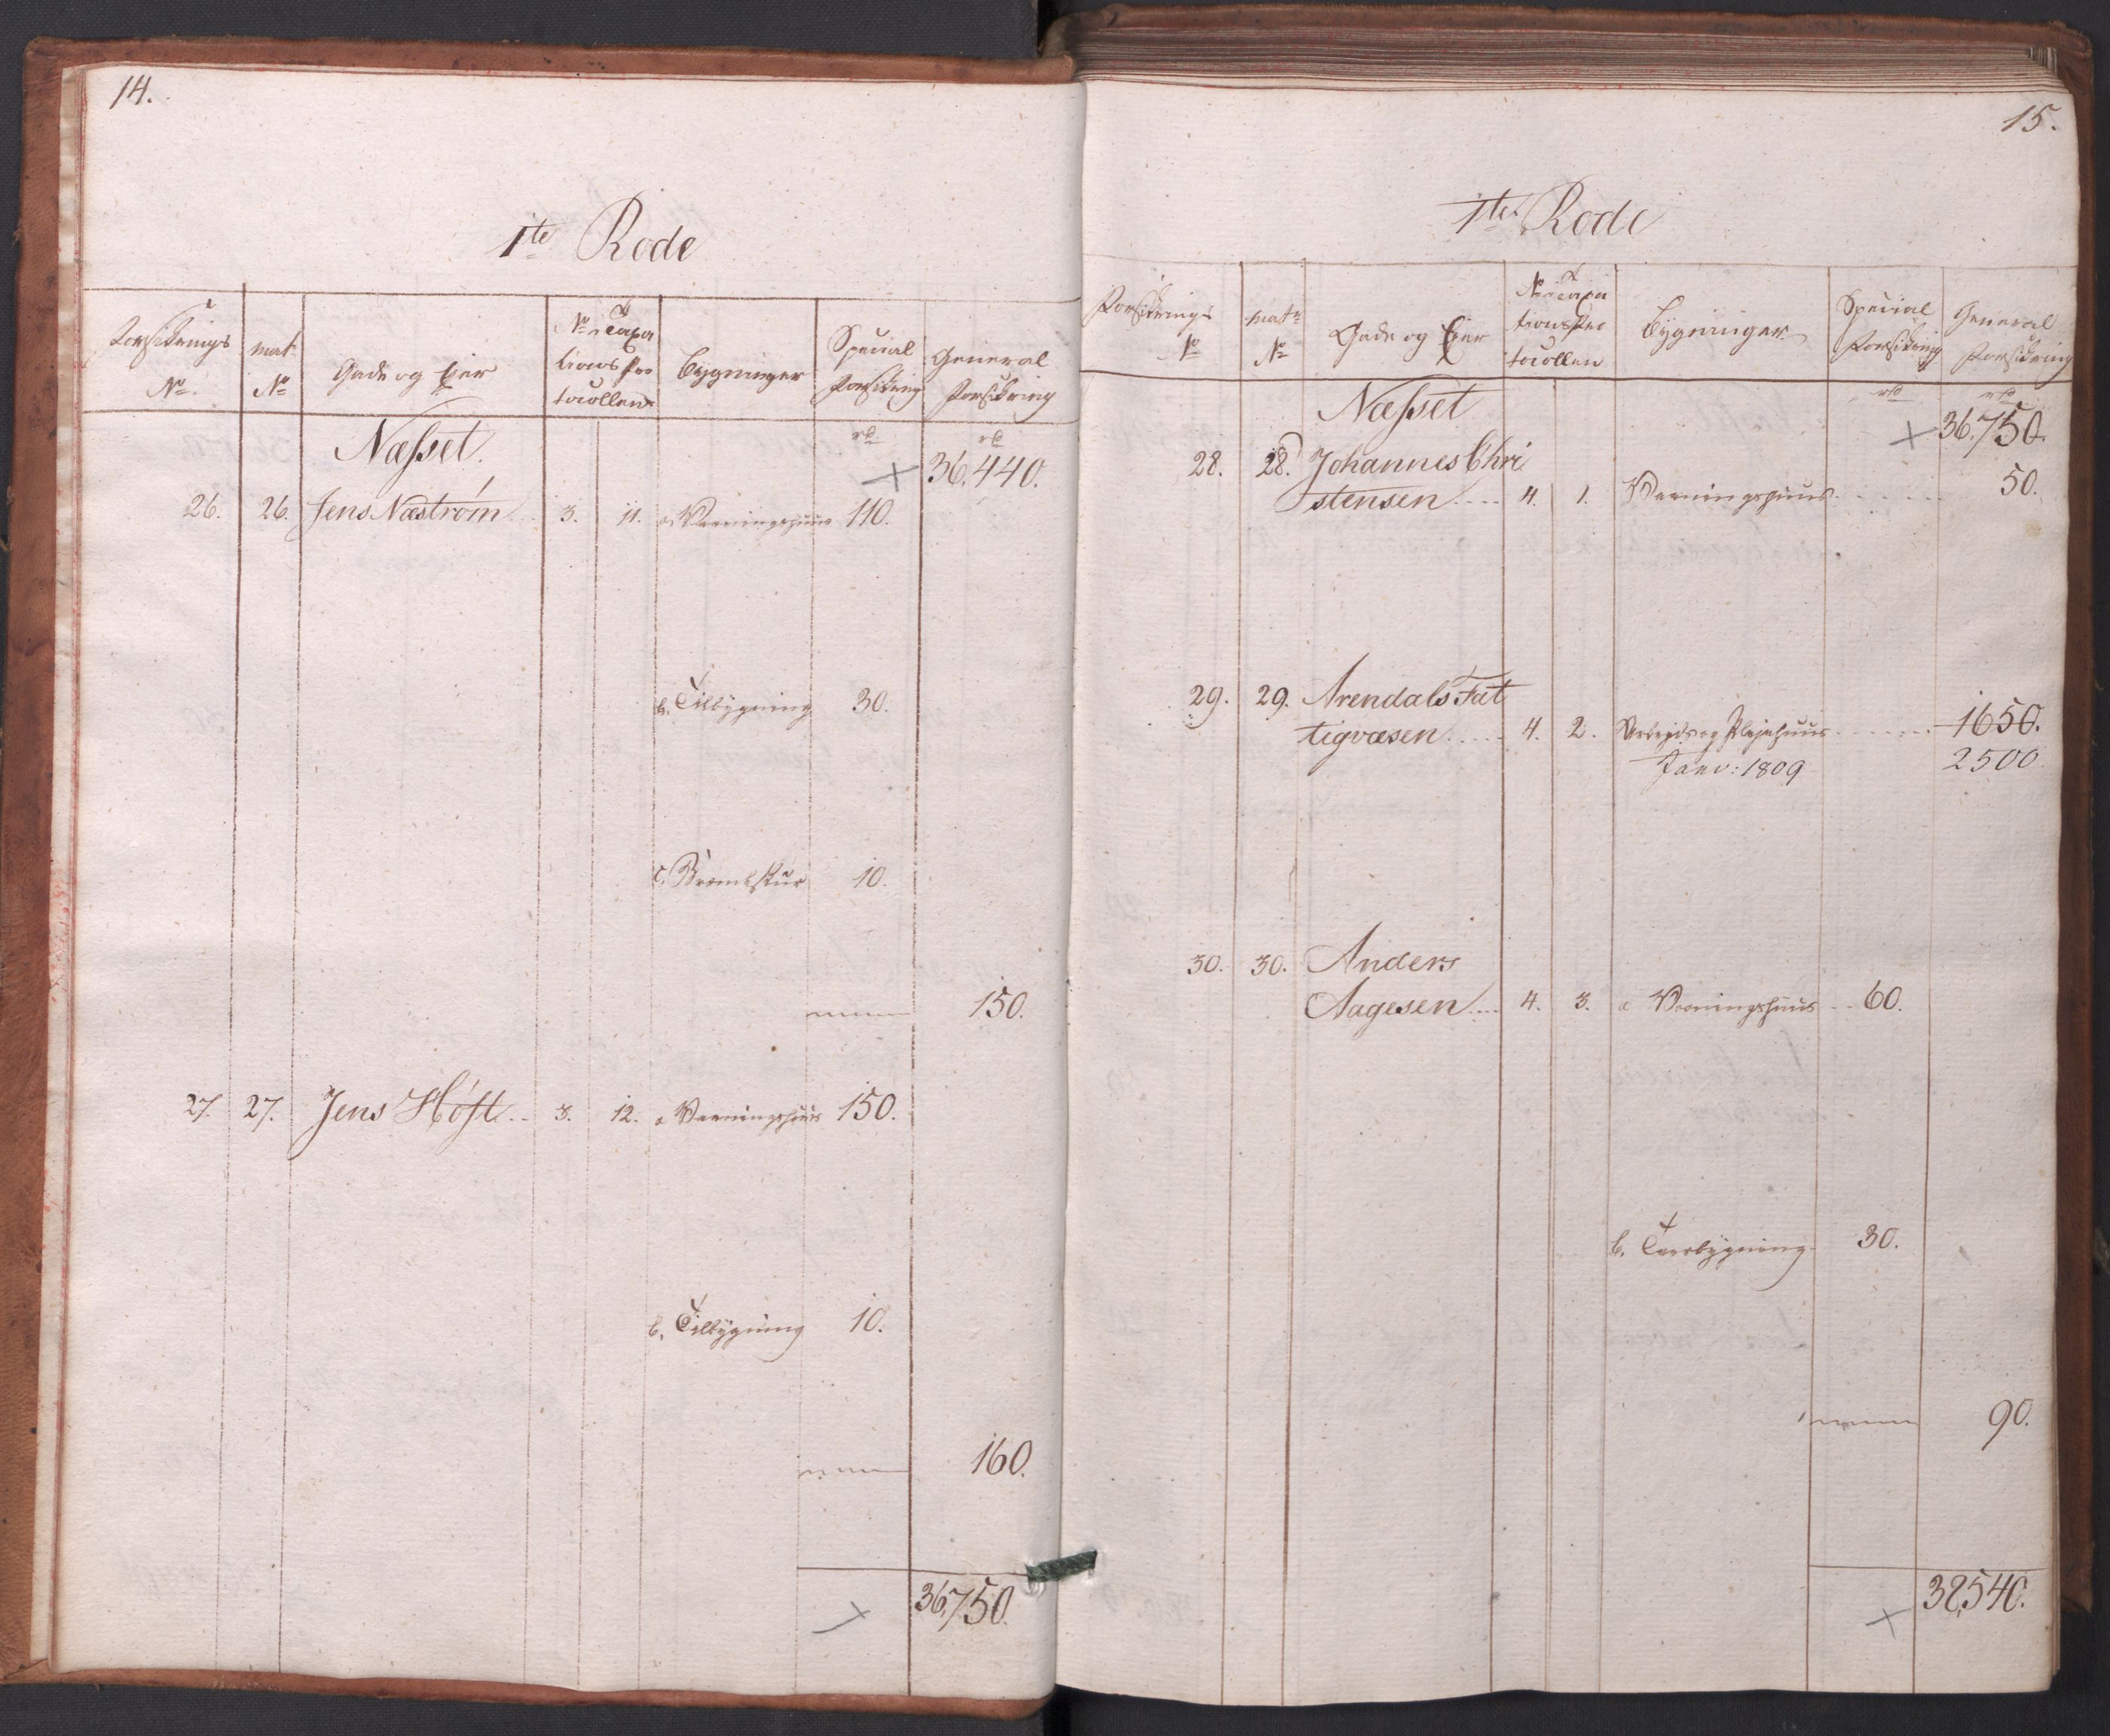 14.
1te Rode
Forsikrings No.
mat No
Gade og Eier
No i Taxationsprotocollen
Bygninger
Special Forsikring
General Forsikring
Næsset.
rd rd
36.440.
26. 26. Jens Næstrøm 3. 11. a. Vaaningshuus 110.
b. Tilbygning 30.
c. Brændeskur 10.
150.
27. 27. Jens Høst 3. 12. a Vaaningshuus 150.
b. Tilbygning 10.
160.
36,750.
15.
1te Rode
Forsikrings No
matr No
Gade og Eier
No i Taxationsprotocollen
Bygninger
Special Forsikring
General Forsikring
Næsset
rd rd
36,750.
28. 28. Johannes Chri
stensen 4. 1. Vaaningshuus 50.
29. 29. Arendals Fat
tigvæsen 4. 2. Arbeids og Plejehuus 1650.
Janv: 1809 2500
30. 30. Anders
Aagesen 4. 3. a Vaaningshuus 60.
b. Tverbygning 30.
90.
38,540.